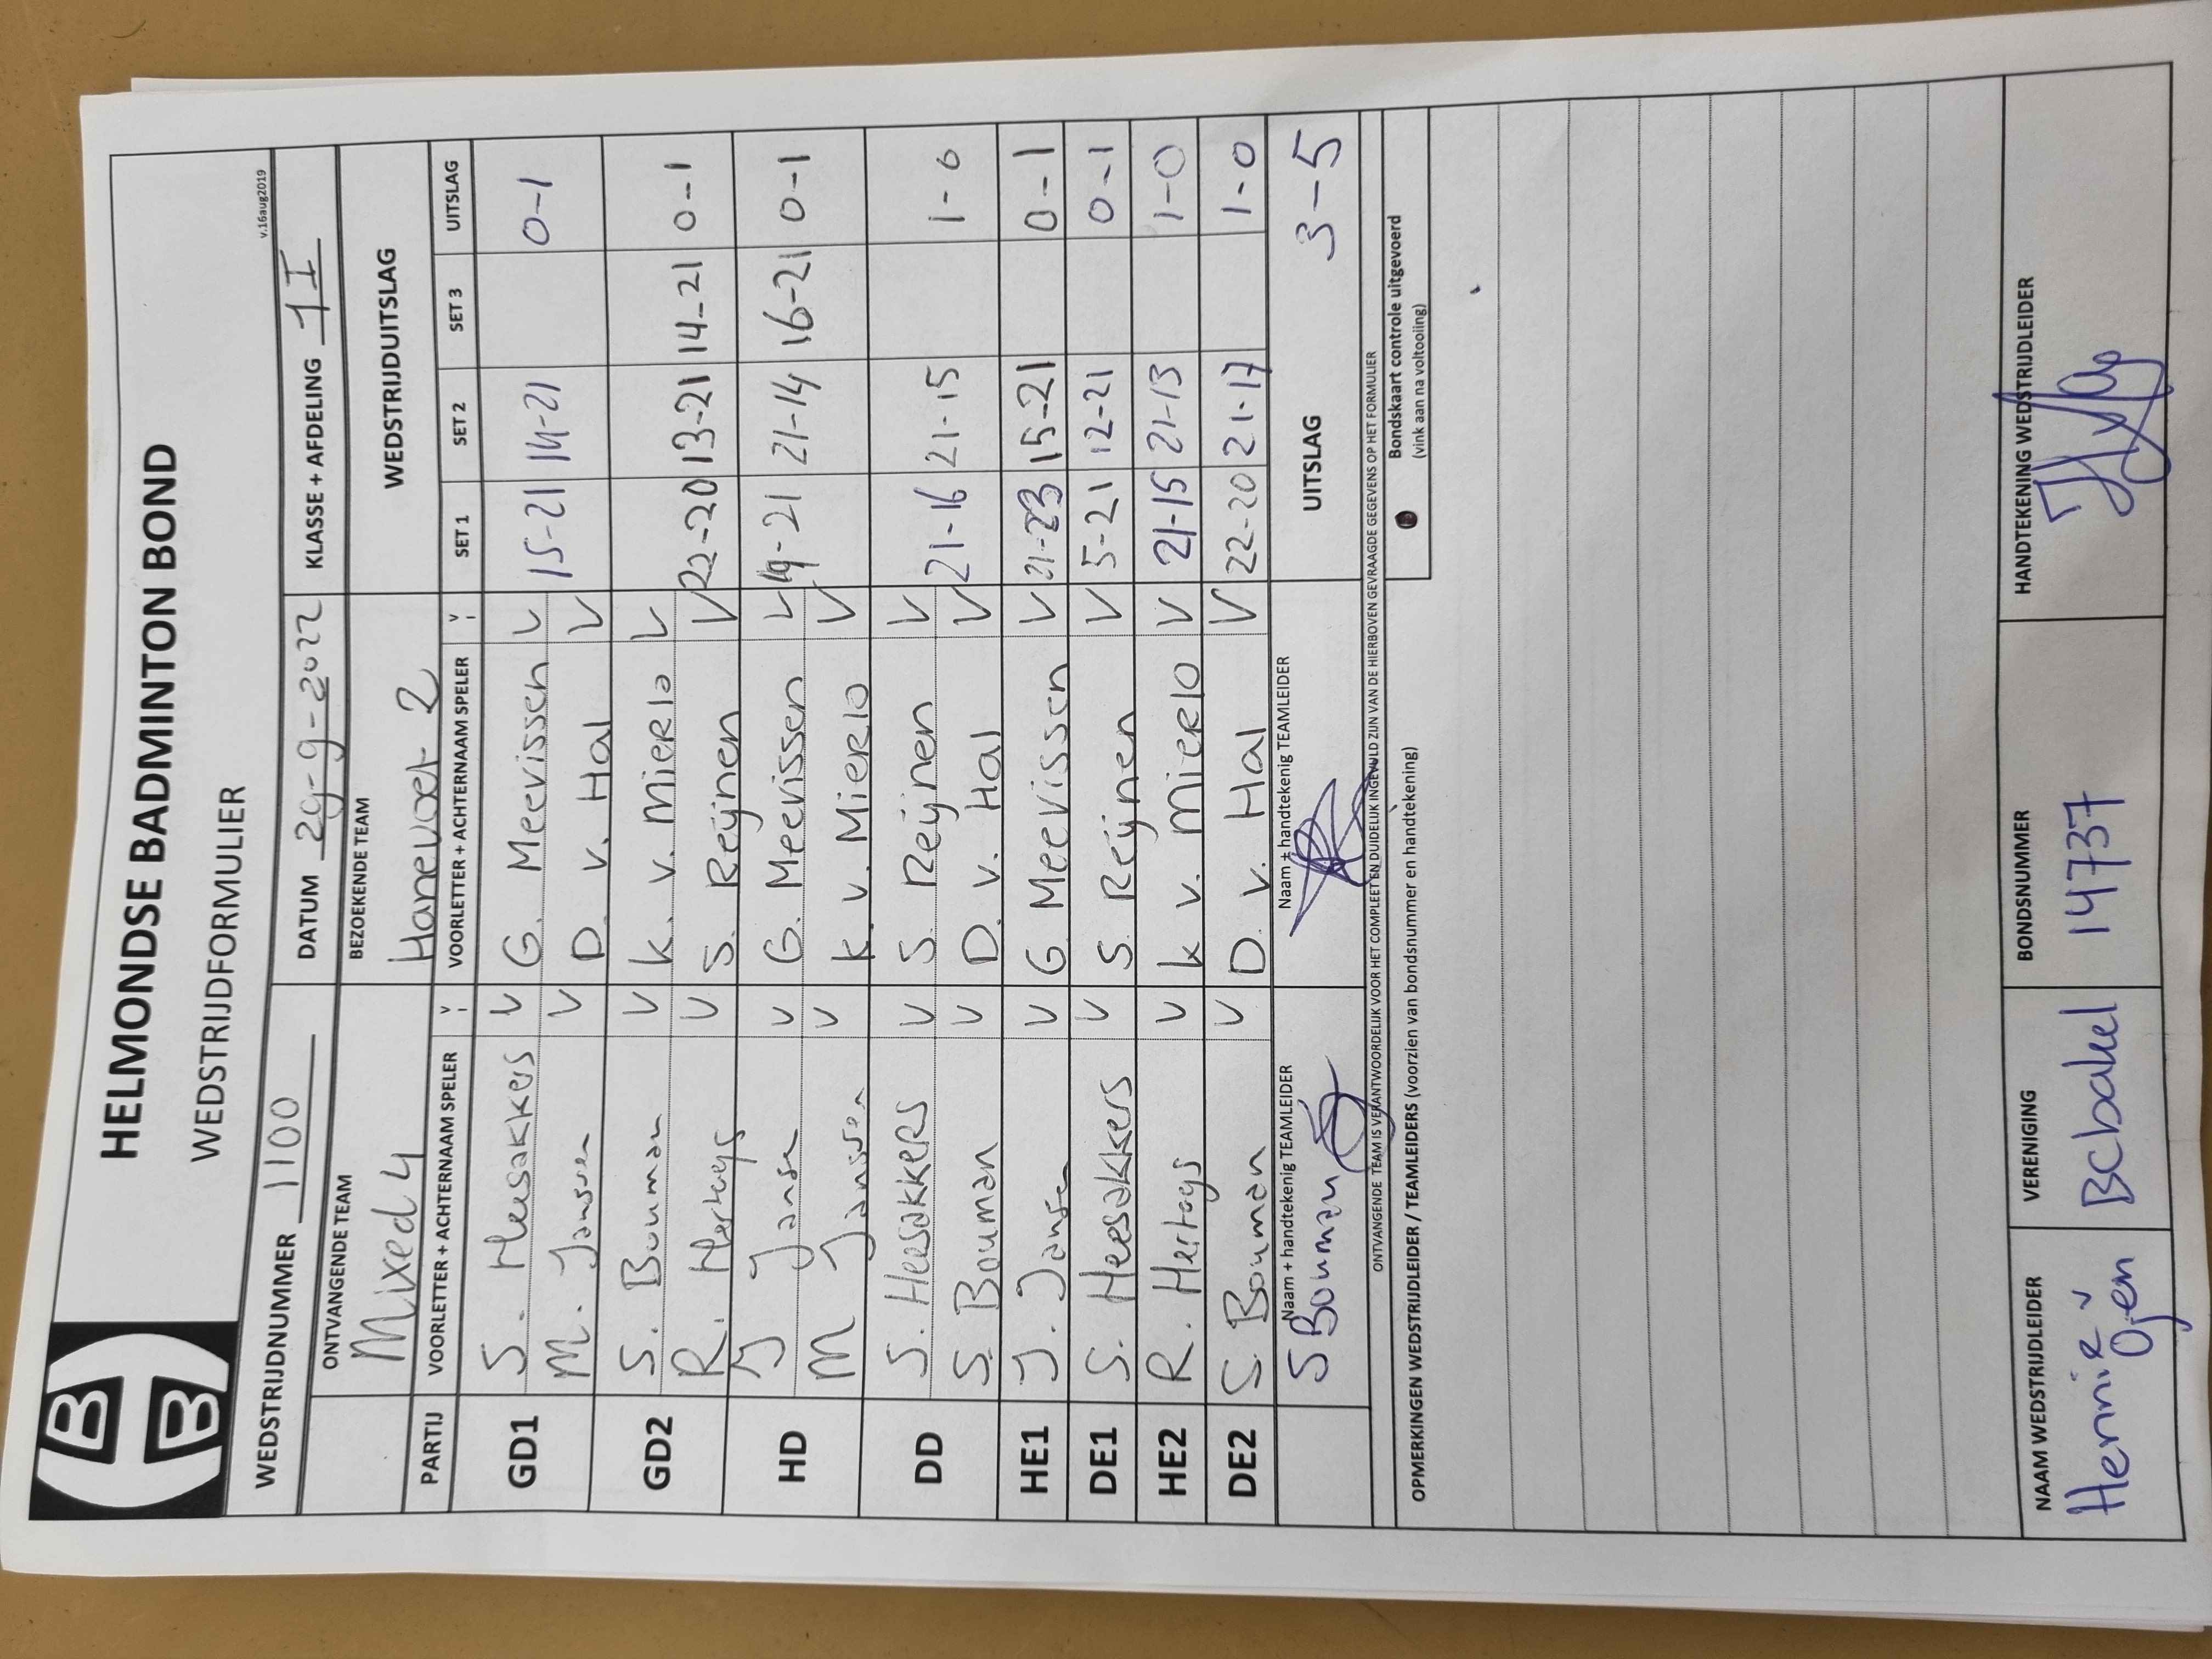 HELMONDSE BADMINTON BOND
WEDSTRIJDFORMULIER
v.16aug2019
WEDSTRIJDNUMMER 1100 DATUM 29-9-2022 KLASSE + AFDELING 1I
ONTVANGENDE TEAM BEZOEKENDE TEAM WEDSTRIJDUITSLAG
Mixed 4 Hanevoet 2
PARTIJ VOORLETTER + ACHTERNAAM SPELER V VOORLETTER + ACHTERNAAM SPELER V SET 1 SET 2 SET 3 UITSLAG
GD1 S. Heesakkers V G. Meevissen V 15-21 14-21 0-1
M. Jansen V D. v. Hal V
GD2 S. Bouman V K. v. Mierlo V 22-20 13-21 14-21 0-1
R. Hertogs V S. Reijnen V
HD J Janse V G. Meevissen V 19-21 21-14 16-21 0-1
M Jansen V K. v. Mierlo V
DD S. Heesakkers V S. Reijnen V 21-16 21-15 1-0
S. Bouman V D. v. Hal V
HE1 J. Janse V G Meevissen V 21-23 15-21 0-1
DE1 S. Heesakkers V S. Reijnen V 5-21 12-21 0-1
HE2 R. Hertogs V K v. Mierlo V 21-15 21-13 1-0
DE2 S. Bouman V D. v. Hal V 22-20 21-17 1-0
Naam + handtekenig TEAMLEIDER Naam + handtekenig TEAMLEIDER UITSLAG 3-5
S Bouman
ONTVANGENDE TEAM IS VERANTWOORDELIJK VOOR HET COMPLEET EN DUIDELIJK INGEVULD ZIJN VAN DE HIERBOVEN GEVRAAGDE GEGEVENS OP HET FORMULIER
OPMERKINGEN WEDSTRIJDLEIDER / TEAMLEIDERS (voorzien van bondsnummer en handtekening)
Bondskaart controle uitgevoerd
(vink aan na voltooiing)
NAAM WEDSTRIJDLEIDER VERENIGING BONDSNUMMER HANDTEKENING WEDSTRIJDLEIDER
Hennie v BCbakel 14737